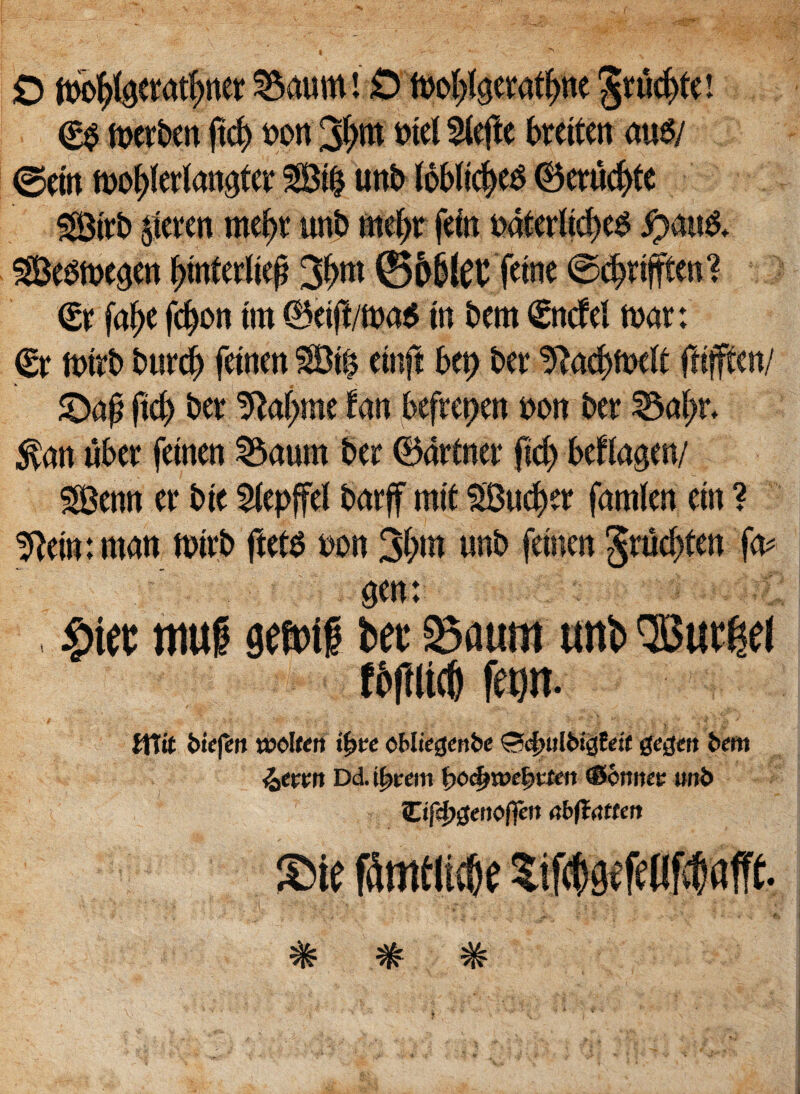 O wohlgerathner Baum! O wohlgerathne Früchte!
Es werden sich von Ihm viel Aeste breiten aus/
Sein wohlerlangter Witz und löbliches Gerüchte
Wird zieren mehr und mehr sein väterliches Haus.
Weswegen hinterließ Ihm Göbler seine Schrifften?
Er sahe schon im Geist/was in dem Enckel war:
Er wird durch seinen Witz einst bey der Nachwelt stifften/
Daß sich der Nahme kan befreyen von der Bahr.
Kan über seinen Baum der Gärtner sich beklagen/
Wenn er die Aepffel darff mit Wucher samlen ein?
Nein: man wird stets von Ihm und seinen Früchten sa-
gen:
Hier muß gewiß der Baum und Wurtzel
köstlich seyn.
Mit diesen wolten ihre obliegende Schuldigkeit gegen dem
Herrn Dd. ihrem hochwehrten Gönner und
Tischgenossen abstatten
Die sämtliche Tischgesellschafft.
* * *